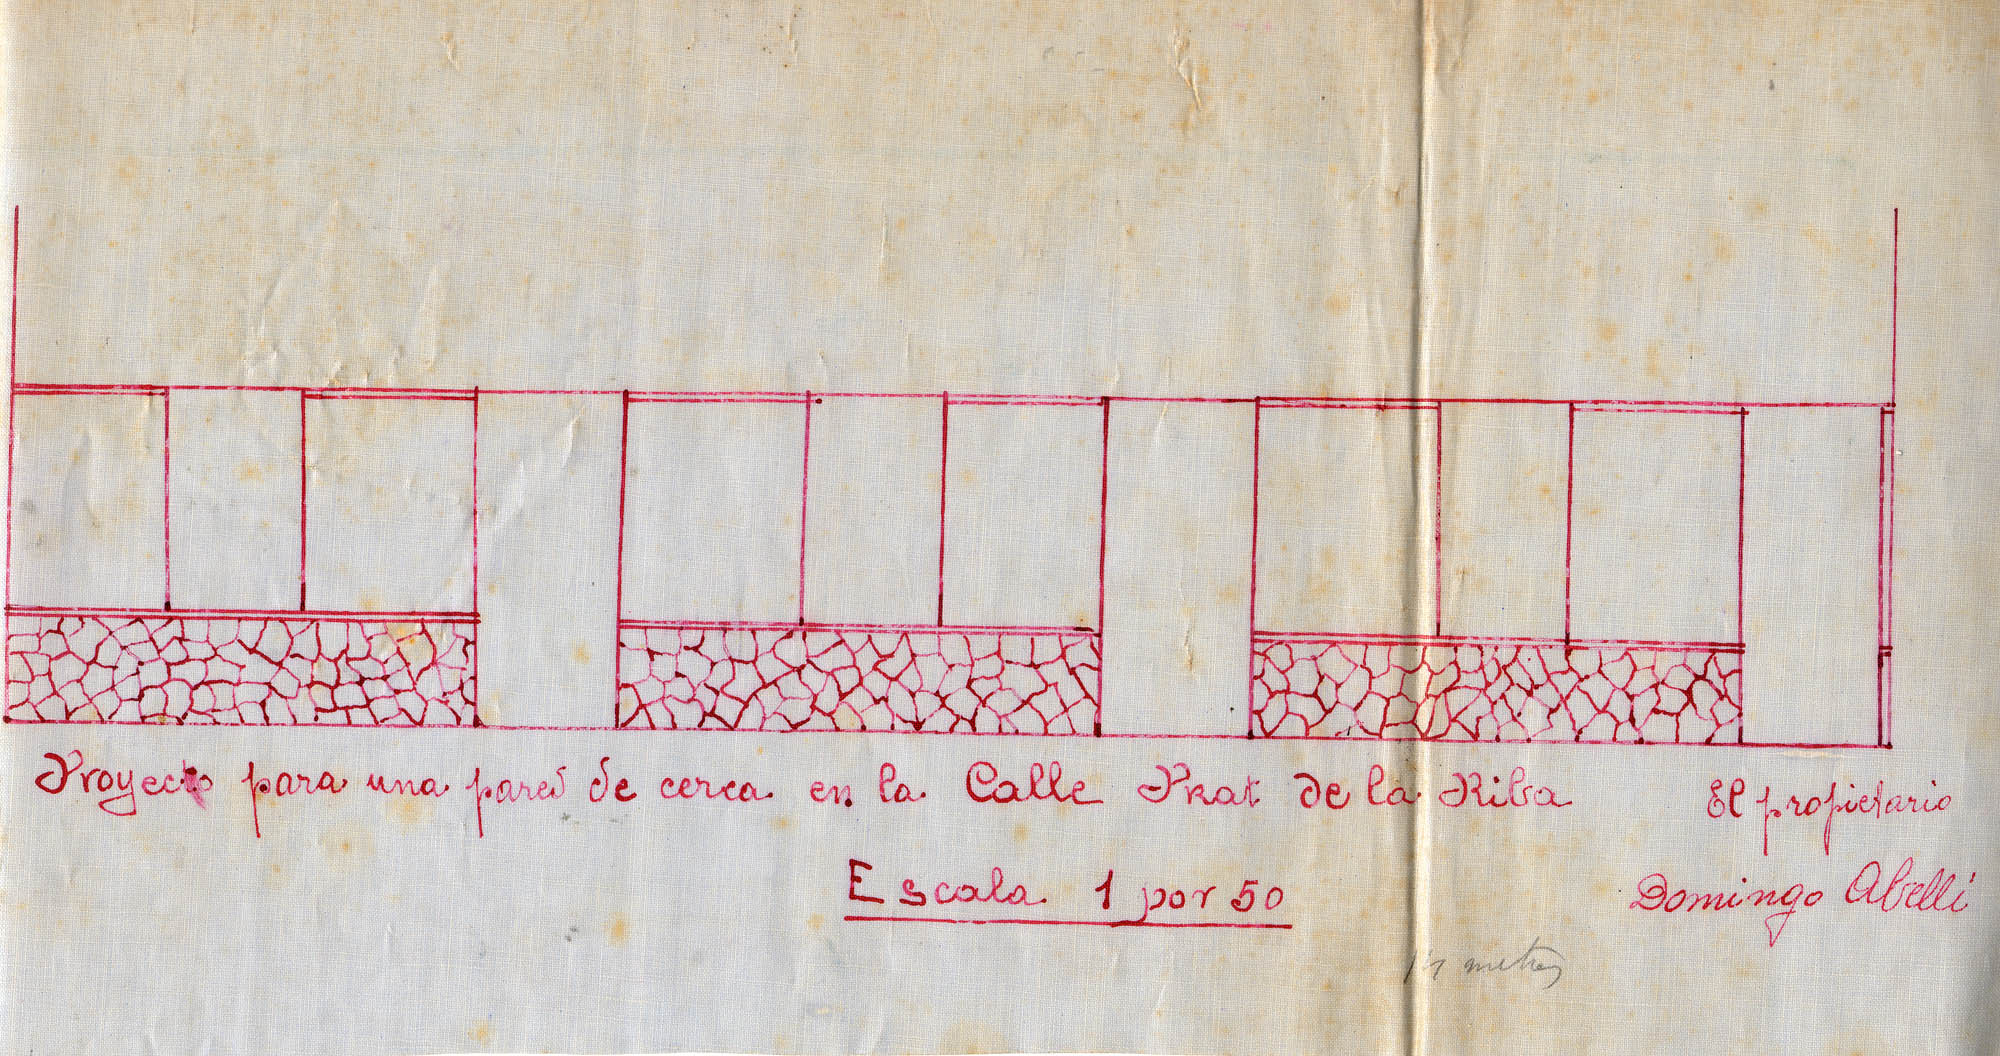 Proyecto para una pared de cerca en la Calle Prat de la Riba
El propietario
Escala 1 por 50
Domingo Abelli
metros